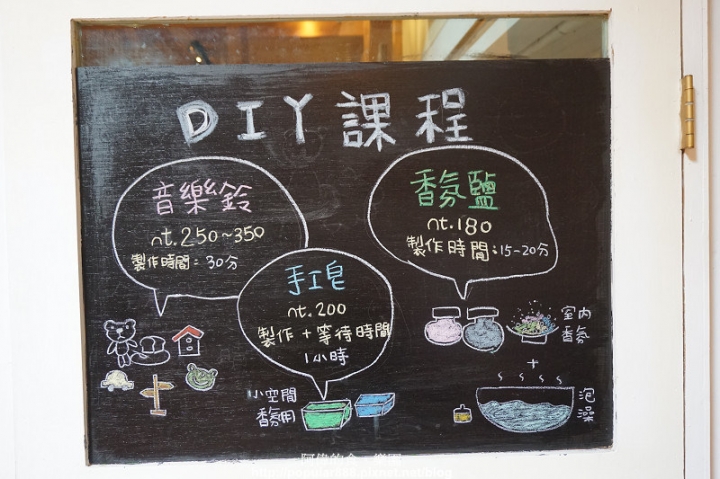 DIY課程
音樂鈴
nt.250~350
製作時間：30分
香氛鹽
nt.180
製作時間：15-20分
手工皂
nt.200
製作+等待時間
1小時
室內
香氛
+
泡
澡
小空間
香氛用